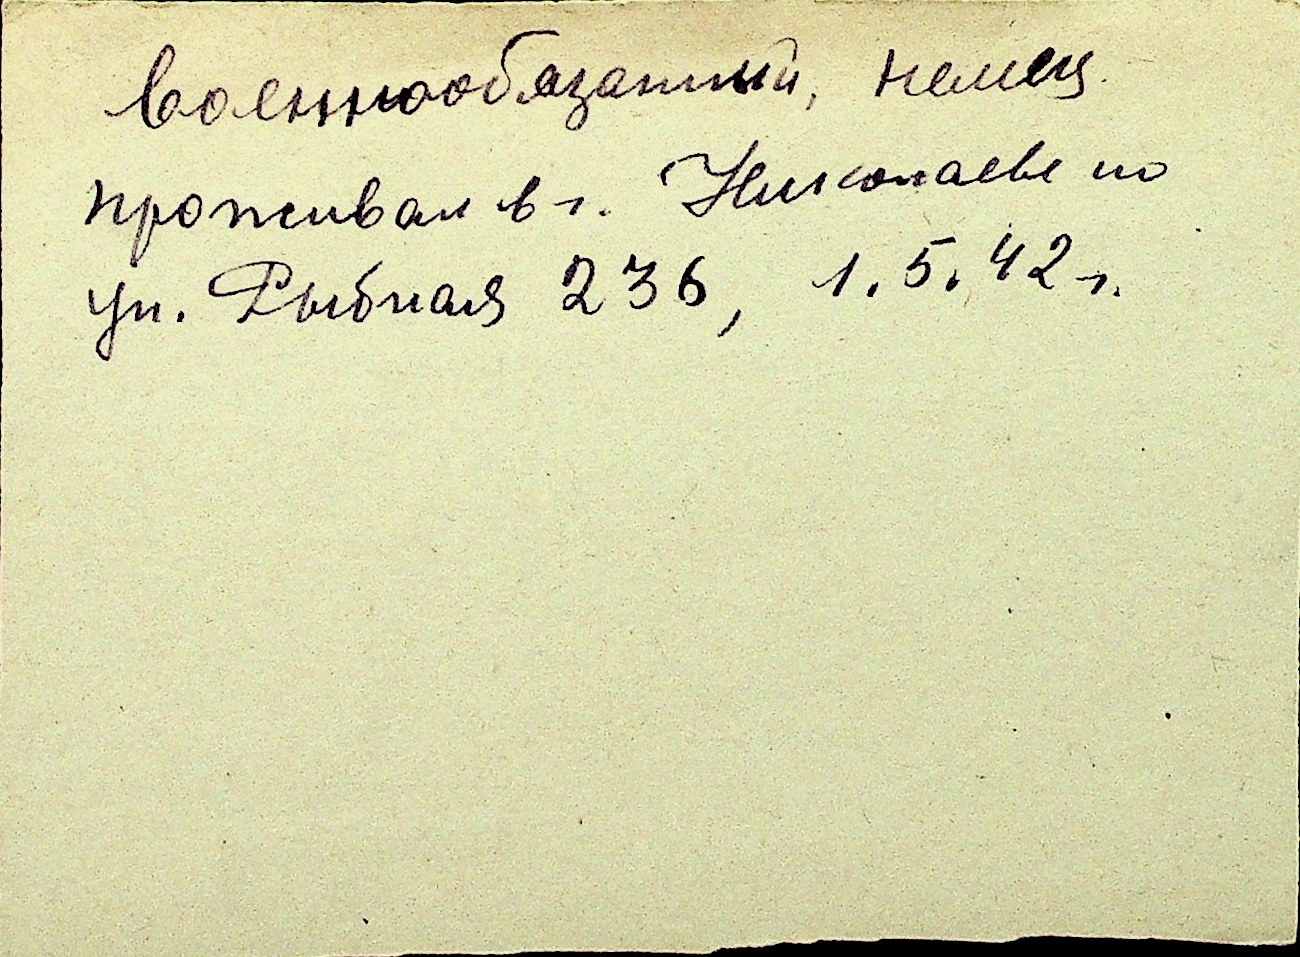 Военнообязанный, немец.
проживал в г. Николаеве по
ул. Рыбная 236, 1.5.42 г.